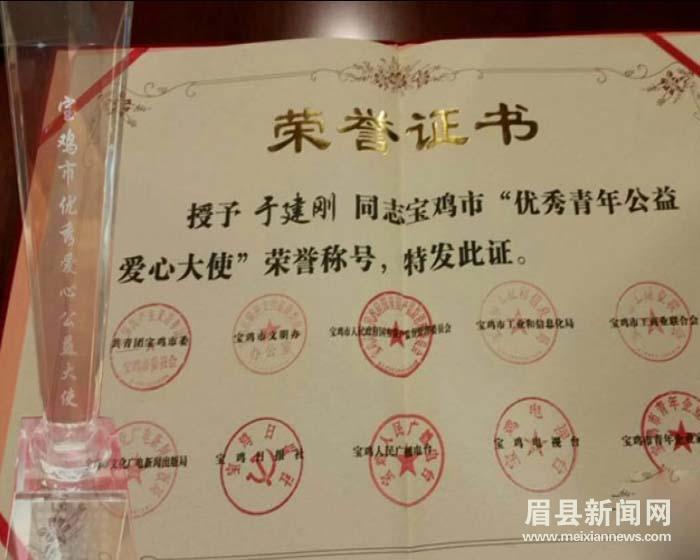 宝鸡市优秀爱心公益大使
荣誉证书
授予 于建刚 同志宝鸡市“优秀青年公益
爱心大使”荣誉称号，特发此证。
共青团宝鸡市委
宝鸡市文明办
宝鸡市工业和信息化局
宝鸡市工商业联合会
文化广电新闻出版局
宝鸡日报社
宝鸡人民广播电台
宝鸡电视台
宝鸡市青年企业
眉县新闻网
www.meixiannews.com